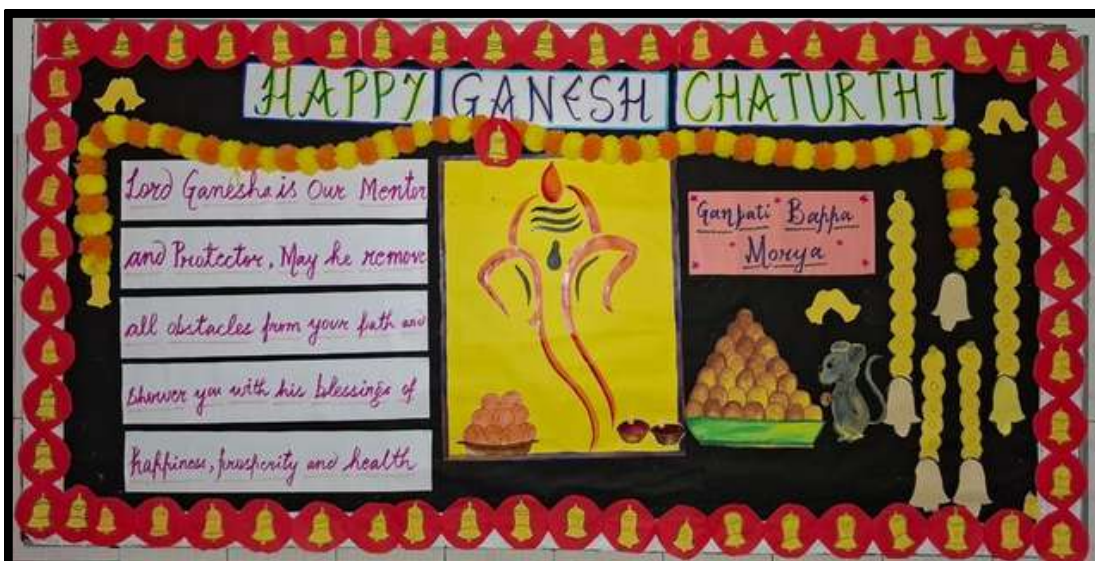 HAPPY GANESH CHATURTHI
Lord Ganesha is Our Mentor
and Protector, May he remove
all obstacles from your path and
shower you with his blessings of
happiness, prosperity and health
Ganpati Bappa
Morya